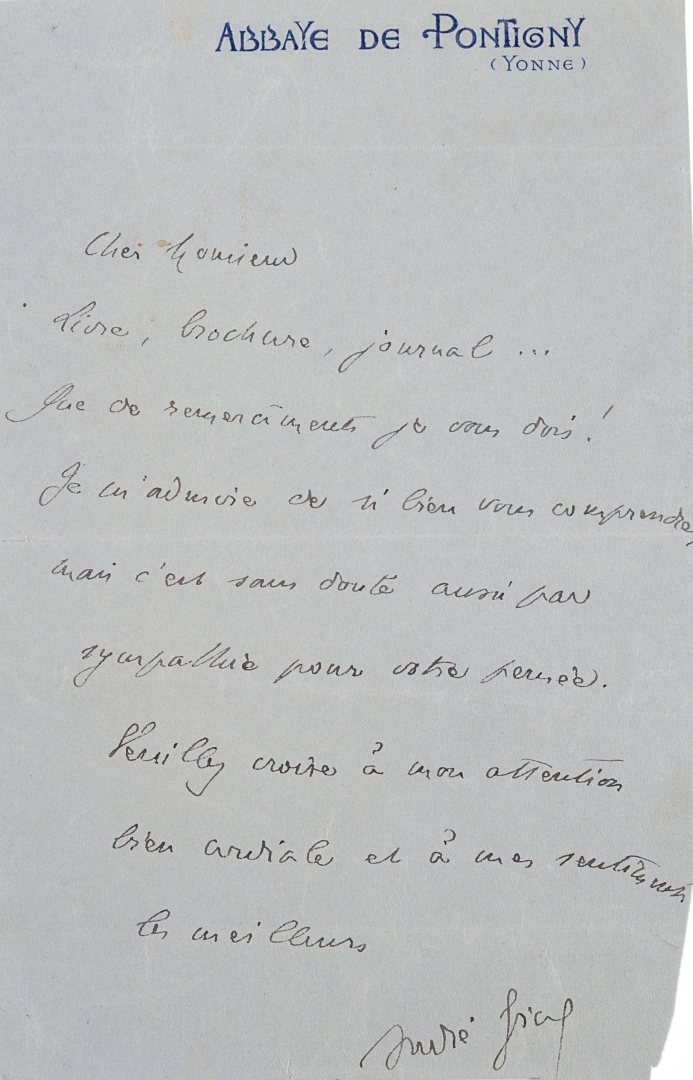 ABBAYE DE PONTIGNY
(YONNE)
Cher Monsieur
Livre, brochure, journal ...
Que de remerciments je vous dois !
Je m'admire de si bien vous comprendre,
mais c'est sans doute aussi par
sympathie pour votre pensée.
Veuillez croire à mon attention
bien cordiale et à mes sentiments
les meilleurs
André Gide